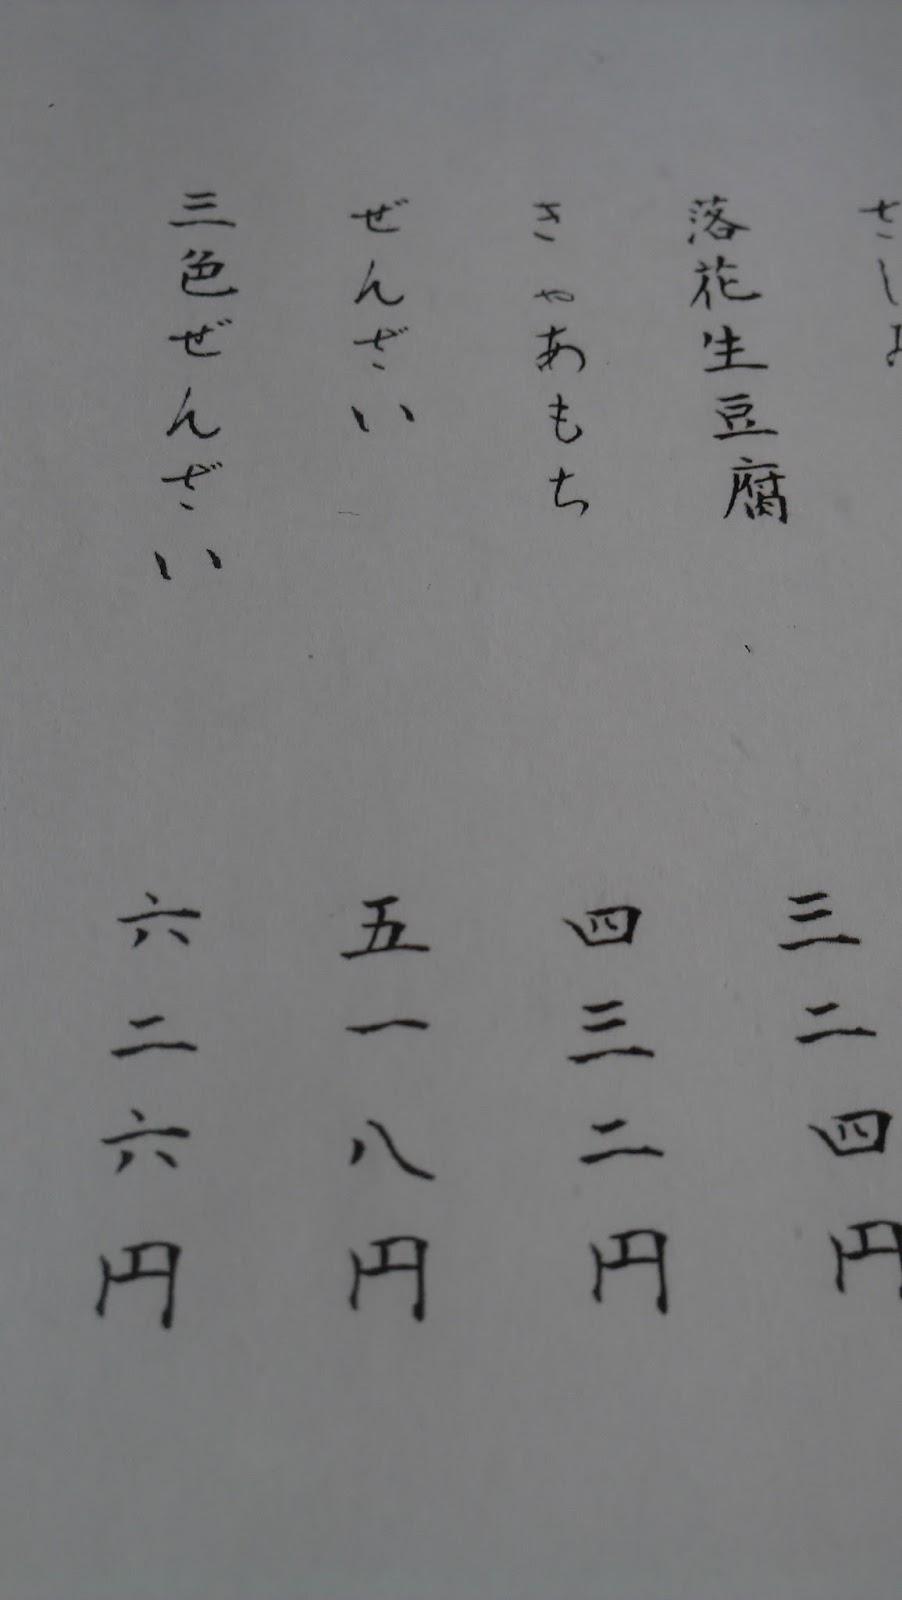 さしみ
落花生豆腐
三二四円
きゃあもち
四三二円
ぜんざい
五一八円
三色ぜんざい
六二六円